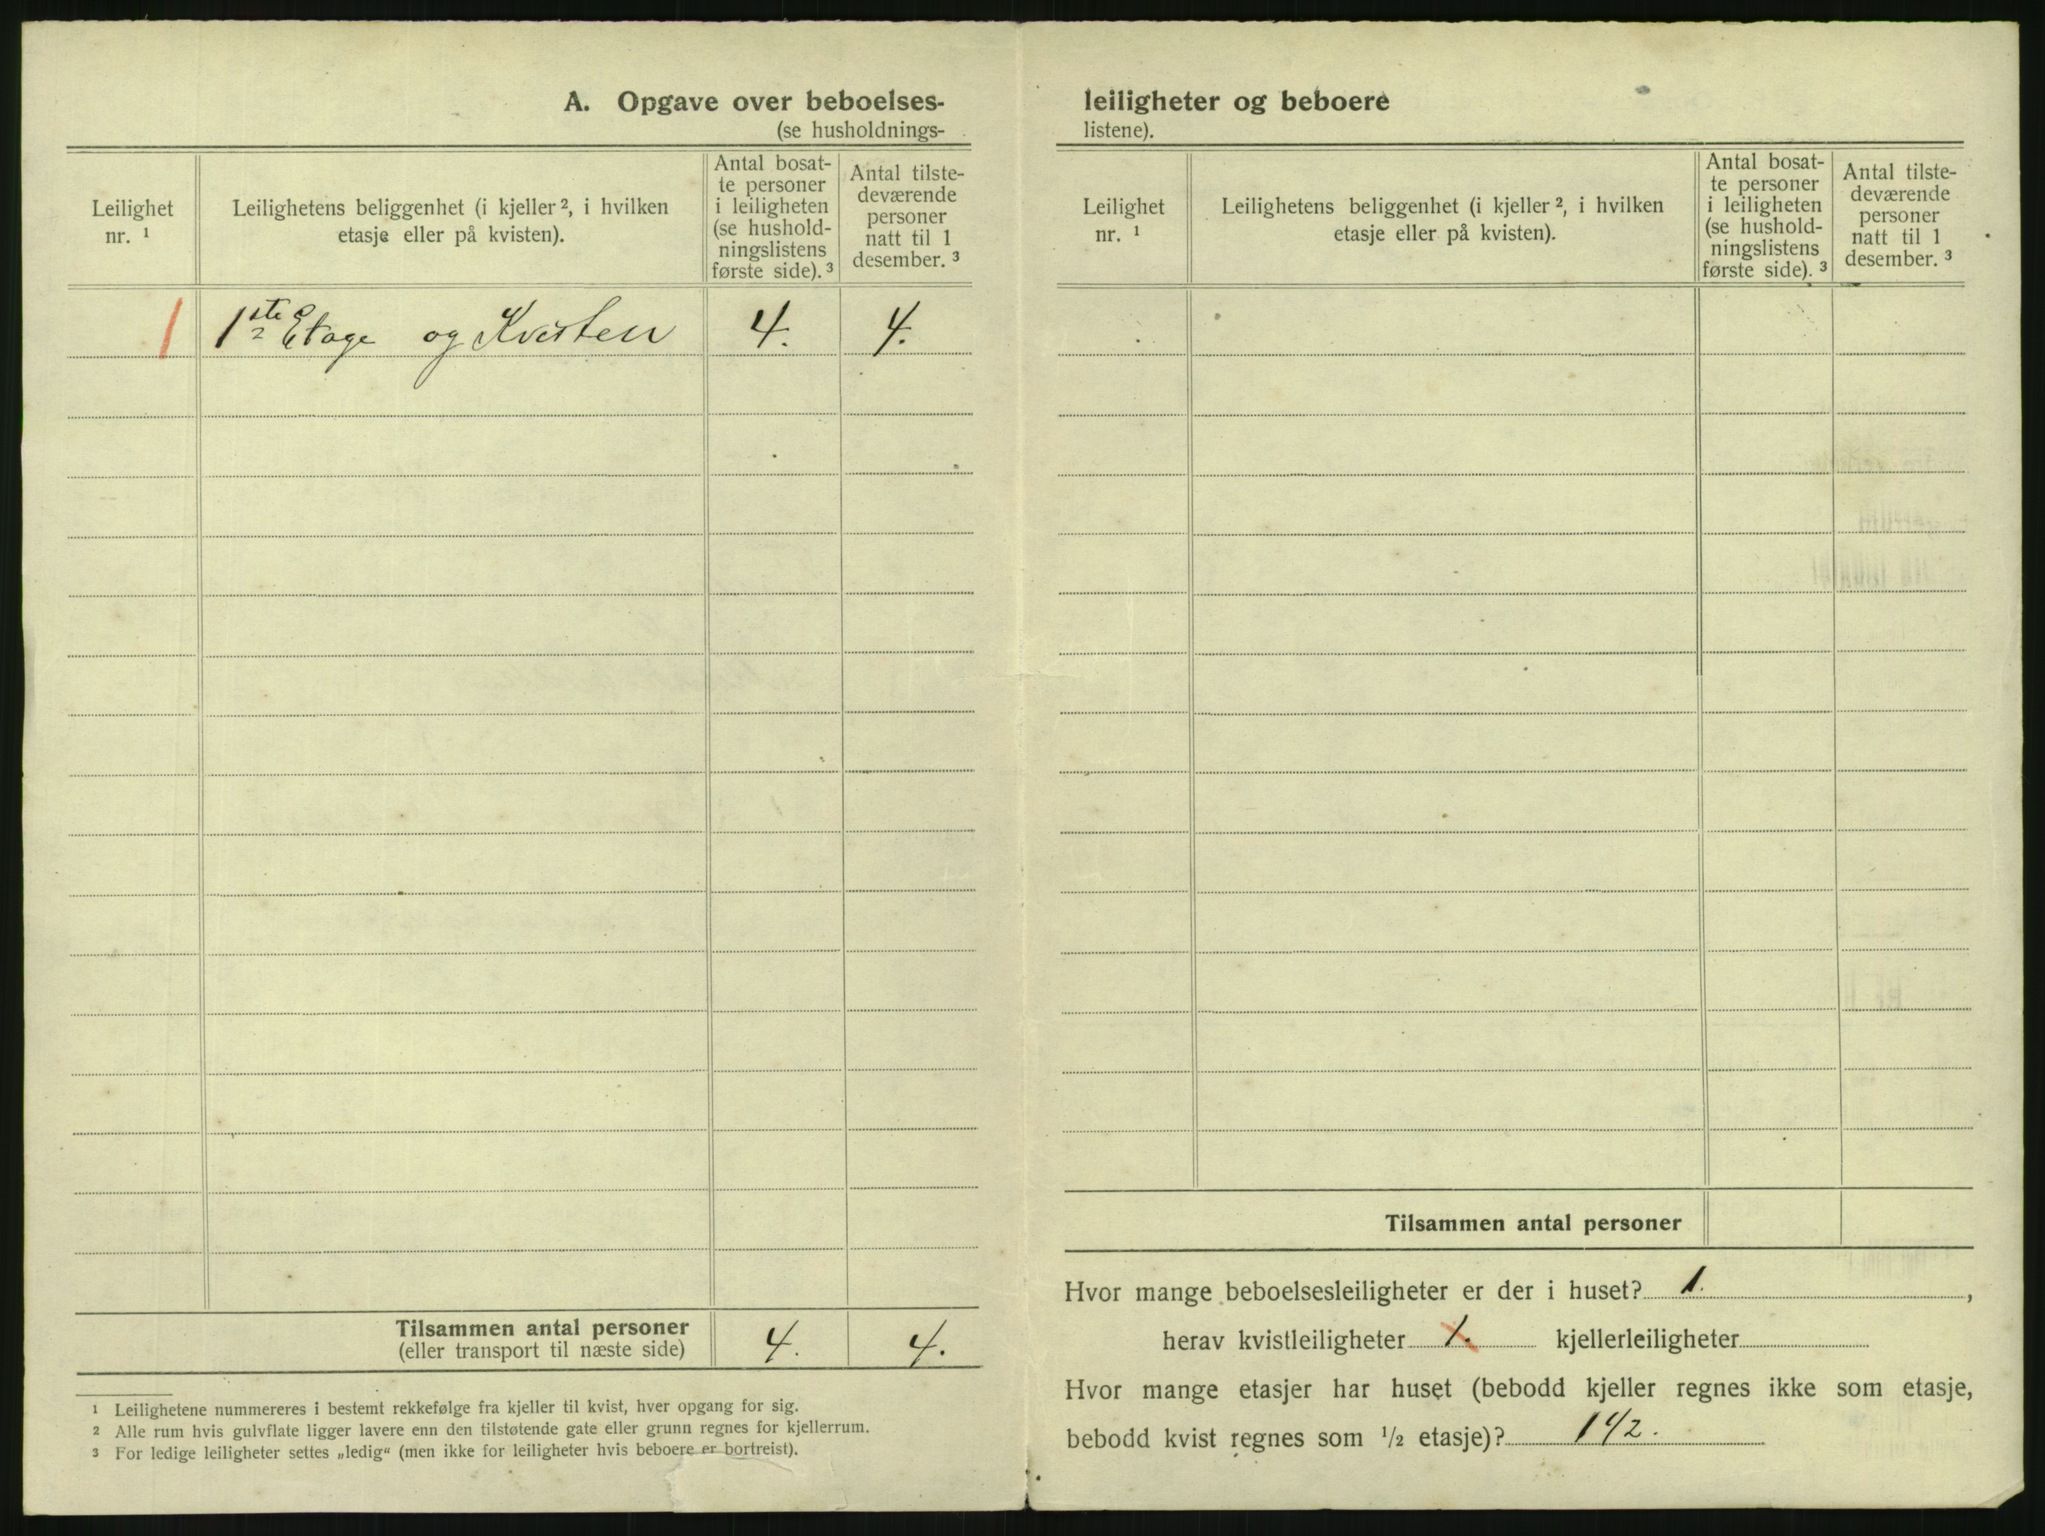 A. Opgave over beboelses-
(se husholdnings-
Leilighet
nr. ¹
Leilighetens beliggenhet (i kjeller ², i hvilken
etasje eller på kvisten).
Antal bosat-
te personer
i leiligheten
(se hushold-
ningslistens
første side). ³
Antal tilste-
deværende
personer
natt til 1
desember. ³
1 1ste Etage og Kvisten 4. 4.
Tilsammen antal personer 4. 4.
(eller transport til næste side)
¹ Leilighetene nummereres i bestemt rekkefølge fra kjeller til kvist, hver opgang for sig.
² Alle rum hvis gulvflate ligger lavere enn den tilstøtende gate eller grunn regnes for kjellerrum.
³ For ledige leiligheter settes „ledig“ (men ikke for leiligheter hvis beboere er bortreist).
leiligheter og beboere
listene).
Leilighet
nr. ¹
Leilighetens beliggenhet (i kjeller ², i hvilken
etasje eller på kvisten).
Antal bosat-
te personer
i leiligheten
(se hushold-
ningslistens
første side). ³
Antal tilste-
deværende
personer
natt til 1
desember. ³
Tilsammen antal personer
Hvor mange beboelsesleiligheter er der i huset? 1.,
herav kvistleiligheter 1. kjellerleiligheter
Hvor mange etasjer har huset (bebodd kjeller regnes ikke som etasje,
bebodd kvist regnes som ½ etasje)? 1 1/2.